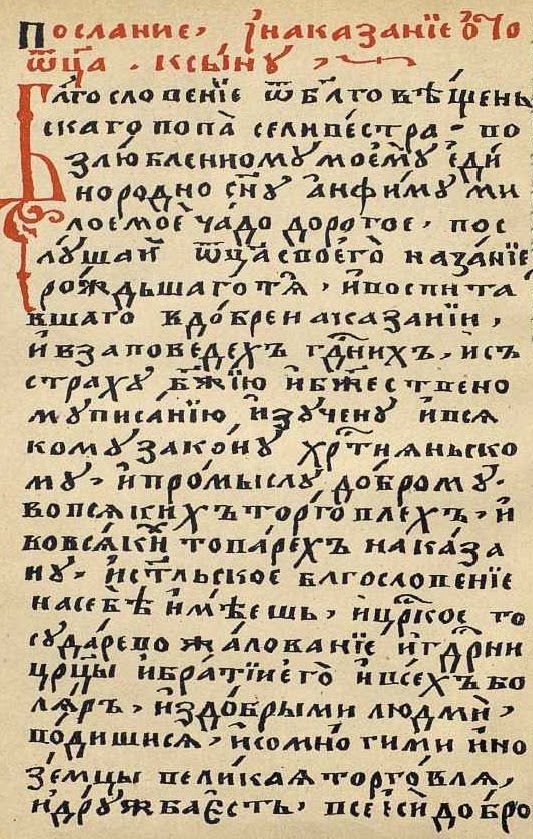 Послание, і҆наказанїе ѿо
ѿц҃а . ксы́ну ,
Бл҃гослове́нїе ѿбл҃говѣ́щень
скаго попа̀ селиве́стра . во
злю́бленному моемꙋ̀ еди
нородно сн҃ꙋ анфимꙋ ми
лоемоѐ ча́до дорогое , пос
лꙋшай ѿц҃а своего̀ наза́нїе
рождьшаготѧ̀ , ивоспита
вшаго вдо́брен аказанїи ,
ивзаповедехъ гд҃нихъ , исъ
страхꙋ бж҃їю ибж҃ествено
мꙋписанїю , изꙋченꙋ ивсѧ
комꙋзако́нꙋ хрⷭ҇тиꙗньско
мꙋ , ипромыслꙋ до́бромꙋ .
вовсѧкихъ торго́влехъ , и
вовсѧкий това́рехъ наказа
нꙋ , ист҃льское блгословенїе
насебѣ имѣешь , ицр҃кое го
сꙋда́рево жа́лованїе игдр҃ни
црц҃ы ибра́тїи его̀ ивсехъ бо
лѧръ , издо́брыми людми́ ,
водишисѧ , исомно́гими ино
зе́мцы великаѧ торго́влѧ ,
идрꙋжба е́сть , все еси̂ добро